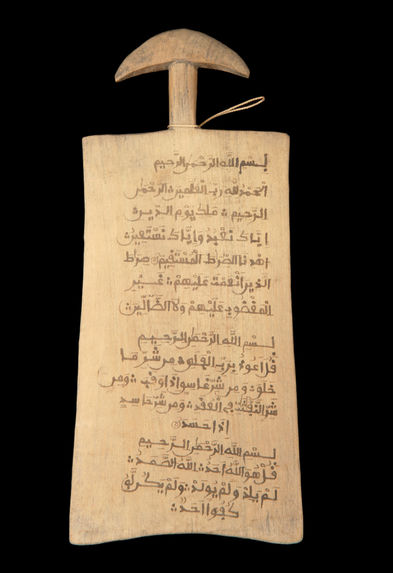 بسم الله الرحمن الرحيم
الحمد لله رب العلمين الرحمن
الرحيم ملك يوم الدين
اياك نعبد واياك نستعين
اهدنا الصرط المستقيم صرط
الذين انعمت عليهم غير
المغضوب عليهم ولا الضالين
بسم الله الرحمن الرحيم
قل اعوذ برب الفلق من شر ما
خلق ومن شر غاسق اذا وقب ومن
شر النفثت في العقد ومن شر حاسد
اذا حسد
بسم الله الرحمن الرحيم
قل هو الله احد الله الصمد
لم يلد ولم يولد ولم يكن له
كفوا احد